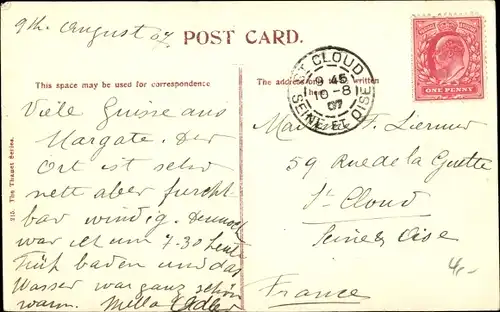 9th August 07.
POST CARD.
This space may be used for correspondence
The address
written
ST CLOUD
9 45
10-8
07
SEINE ET OISE
ONE PENNY
Viele Grüsse aus
Margate. Der
Ort ist sehr
nett aber furcht
bar windig. Dennoch
war ich um 7-30 heute
Früh baden und das
Wasser war ganz schön
warm. Mella Adler
59 Rue de la Guette
St-Cloud
Seine & Oise
France
4,-
215. The Thanet Series.